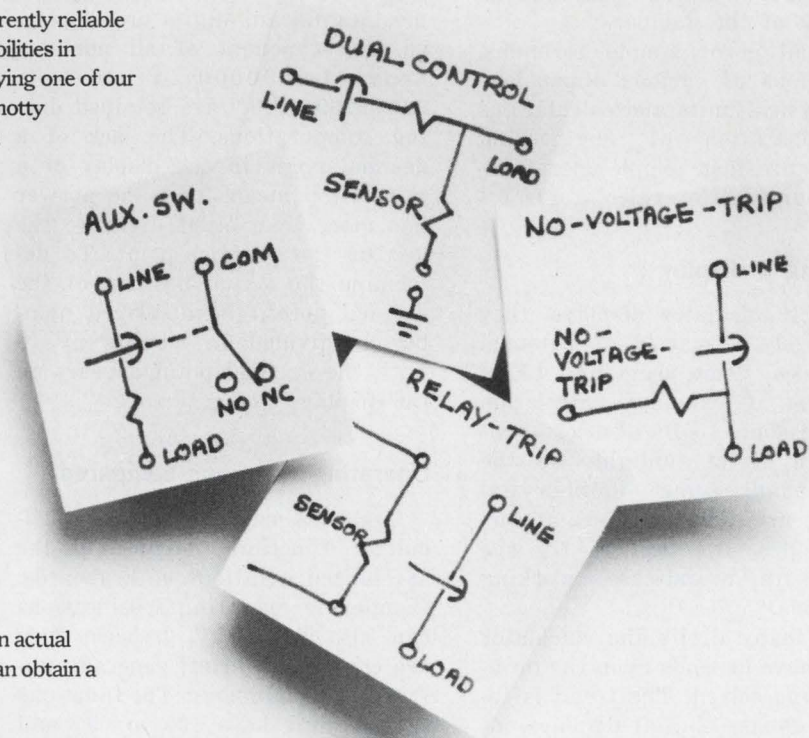 rently reliable
bilities in
ying one of our
notty
DUAL CONTROL
LINE
LOAD
SENSOR
AUX. SW.
LINE
COM
NO NC
LOAD
NO-VOLTAGE-TRIP
LINE
NO-
VOLTAGE-
TRIP
LOAD
RELAY-TRIP
SENSOR
LINE
LOAD
n actual
an obtain a